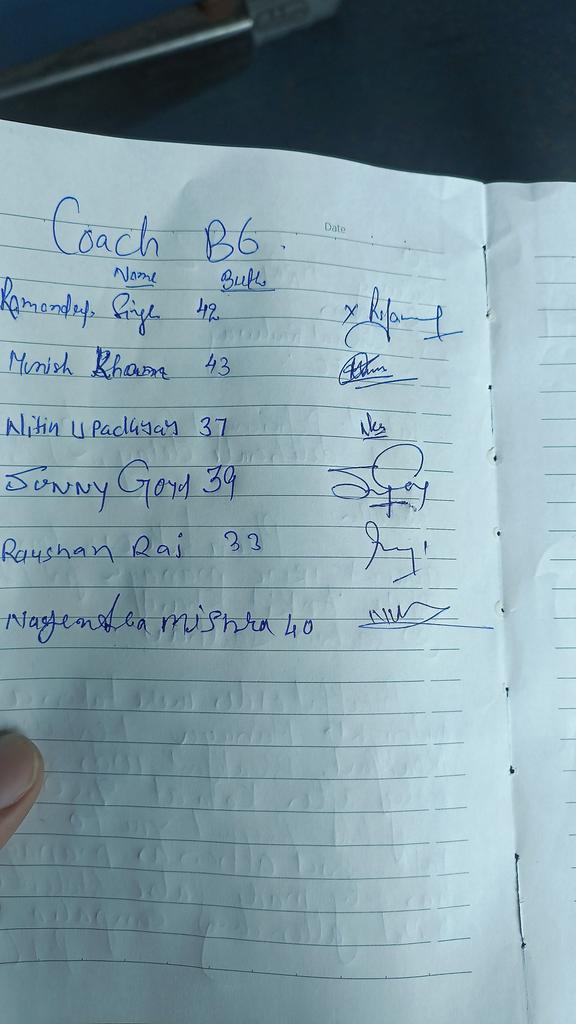 Date
Coach B6.
Name Buth
Ramandep Singh 42
Munish Khanna 43
Nitin Upadhyay 37
SUNNY Goyal 39
Raushan Rai 33
Nagendra mishra 40